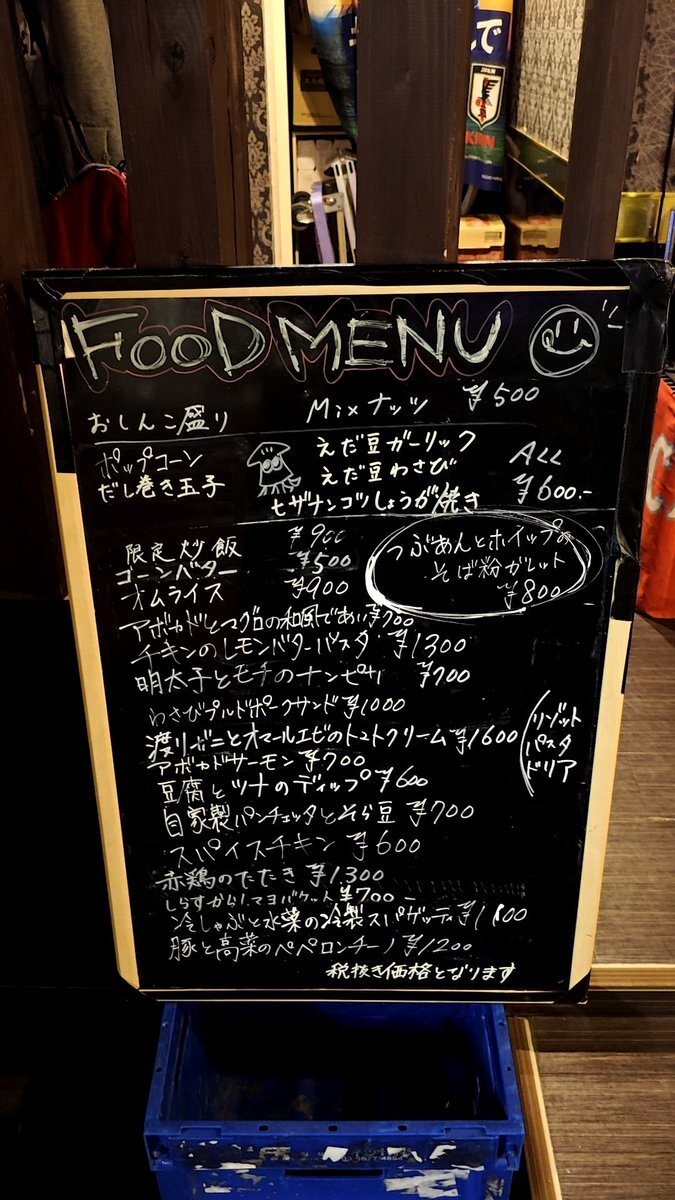 で
JAPAN
KIRIN
FOOD MENU
おしんこ盛り Mixナッツ ¥500
ポップコーン えだ豆ガーリック ALL
だし巻き玉子 えだ豆わさび ¥600.-
ヒザナンコツしょうが焼き
限定炒飯 ¥900
コーンバター ¥500
オムライス ¥900
つぶあんとホイップの
そば粉ガレット
¥800
アボカドとマグロの和風であい ¥700
チキンのレモンバターパスタ ¥1300
明太子とモチのナンピザ ¥700
わさびプルドポークサンド ¥1000
渡りガニとオマールエビのトマトクリーム ¥1600
リゾット
パスタ
ドリア
アボカドサーモン ¥700
豆腐とツナのディップ ¥600
自家製パンチェッタとそら豆 ¥700
スパイスチキン ¥600
赤鶏のたたき ¥1300
しらすからしマヨバケット ¥700-
冷しゃぶと水菜の冷製スパゲッティ ¥1800
豚と高菜のペペロンチーノ ¥1200
税抜き価格となります